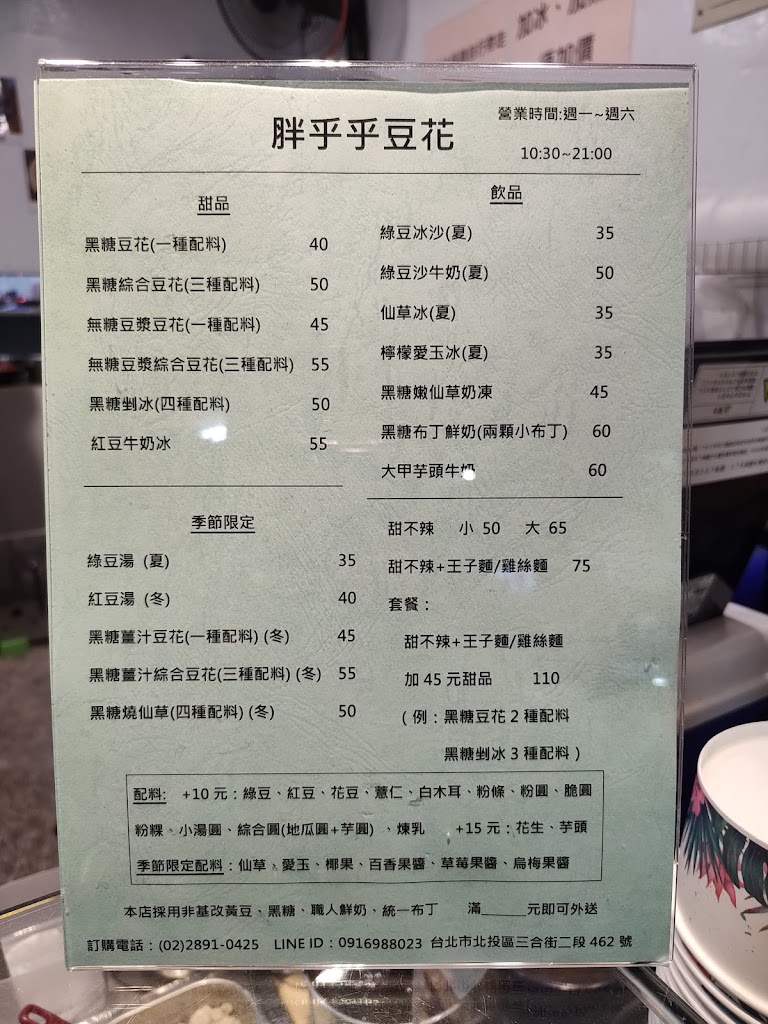 加冰、
加價
胖乎乎豆花
營業時間:週一~週六
10:30~21:00
甜品
黑糖豆花(一種配料) 40
黑糖綜合豆花(三種配料) 50
無糖豆漿豆花(一種配料) 45
無糖豆漿綜合豆花(三種配料) 55
黑糖剉冰(四種配料) 50
紅豆牛奶冰 55
飲品
綠豆冰沙(夏) 35
綠豆沙牛奶(夏) 50
仙草冰(夏) 35
檸檬愛玉冰(夏) 35
黑糖嫩仙草奶凍 45
黑糖布丁鮮奶(兩顆小布丁) 60
大甲芋頭牛奶 60
季節限定
綠豆湯 (夏) 35
紅豆湯 (冬) 40
黑糖薑汁豆花(一種配料) (冬) 45
黑糖薑汁綜合豆花(三種配料) (冬) 55
黑糖燒仙草(四種配料) (冬) 50
甜不辣 小 50 大 65
甜不辣+王子麵/雞絲麵 75
套餐：
甜不辣+王子麵/雞絲麵
加 45 元甜品 110
(例：黑糖豆花 2 種配料
黑糖剉冰 3 種配料)
配料: +10 元：綠豆、紅豆、花豆、薏仁、白木耳、粉條、粉圓、脆圓
粉粿、小湯圓、綜合圓(地瓜圓+芋圓)、煉乳 +15 元：花生、芋頭
季節限定配料：仙草、愛玉、椰果、百香果醬、草莓果醬、烏梅果醬
本店採用非基改黃豆、黑糖、職人鮮奶、統一布丁 滿______元即可外送
訂購電話：(02)2891-0425 LINE ID：0916988023 台北市北投區三合街二段 462 號